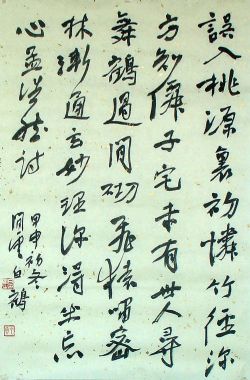 誤入桃源裏初憐竹徑深
方知僊子宅未有世人尋
舞鶴過閒砌飛猿嘯密
林漸通玄妙理深得坐忘
心孟浩然詩
甲申初冬
閒雲白鶴